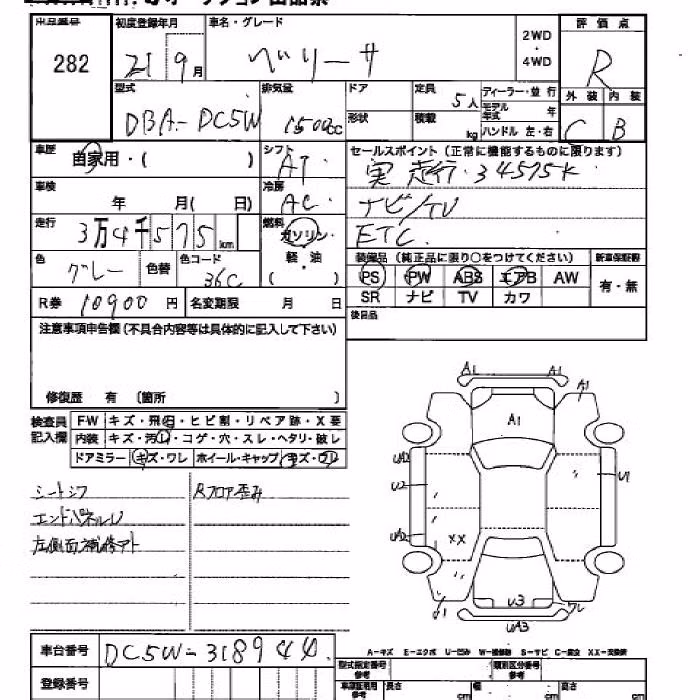 出品番号 初度登録年月 車名・グレード 評価点
282 21 9月 ベリーサ 2WD・4WD R
型式 排気量 ドア 定員 5人 ディーラー・並行 外装 内装
DBA-DC5W 1500cc 形状 積載 kg モデル年式 年 ハンドル 左・右 C B
車歴 自家用・( ) シフト AT セールスポイント(正常に機能するものに限ります)
車検 年 月( 日) 冷房 AC 実走行・34575K
ナビ/TV
走行 3万4千575km 燃料 ガソリン・軽・油 ( ) ETC
色 グレー 色替 色コード 36C 装備品(純正品に限り○をつけてください) 新車保証書
PS PW ABS エアB AW 有・無
R券 10900円 名変期限 月 日 SR ナビ TV カワ
注意事項申告欄(不具合内容等は具体的に記入して下さい) 後日品
修復歴 有 〔箇所 〕
検査員記入欄 FW キズ・飛石・ヒビ割・リペア跡・X要
内装 キズ・汚れ・コゲ・穴・スレ・ヘタリ・破レ
ドアミラー キズ・ワレ ホイール・キャップ キズ・ワレ
シートシワ Rフロア歪み
エンドパネルU
左側面補修アト
A1 A1
A1
A1
UA2
U2 U1
UA2
XX
U3 ワレ
UA3
A-キズ E-エクボ U-凹み W-補修跡 S-サビ C-腐食 XX-交換済
車台番号 DC5W-318944
型式指定番号 類別区分番号
登録番号 長さ cm 幅 cm 高さ cm